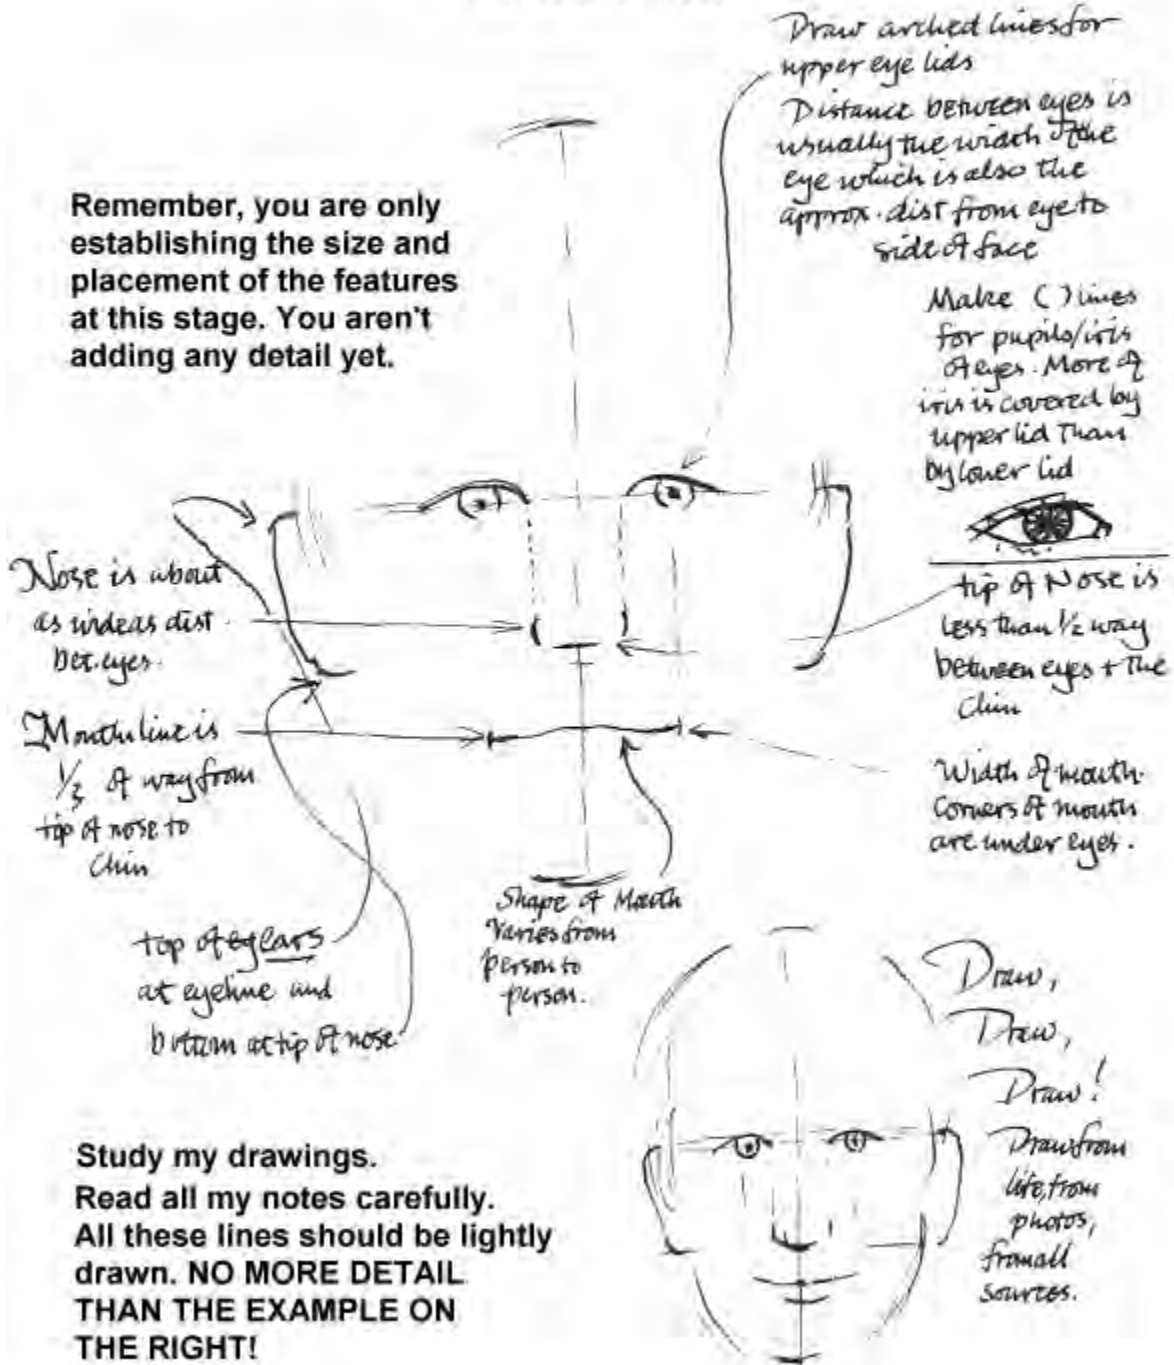 Draw arched lines for
upper eye lids
Distance between eyes is
usually the width of the
eye which is also the
approx. dist from eye to
side of face
Remember, you are only
establishing the size and
placement of the features
at this stage. You aren't
adding any detail yet.
Make ( ) lines
for pupils/iris
of eyes. More of
iris is covered by
upper lid than
by lower lid
Nose is about
as wide as dist
bet. eyes.
tip of Nose is
less than 1/2 way
between eyes + the
Chin
Mouth line is
1/3 of way from
tip of nose to
Chin
Width of mouth.
Corners of mouth
are under eyes.
Shape of Mouth
varies from
person to
person.
top of ears
at eyeline and
bottom at tip of nose
Draw,
Draw,
Draw!
Draw from
life, from
photos,
from all
sources.
Study my drawings.
Read all my notes carefully.
All these lines should be lightly
drawn. NO MORE DETAIL
THAN THE EXAMPLE ON
THE RIGHT!